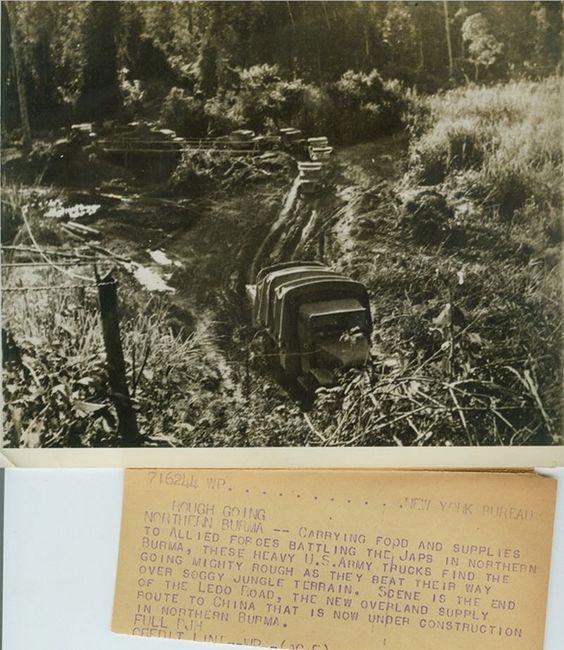 716244 WP. . . . . . . . . . . . . NEW YORK BUREAU
ROUGH GOING
NORTHERN BURMA -- CARRYING FOOD AND SUPPLIES
TO ALLIED FORCES BATTLING THE JAPS IN NORTHERN
BURMA, THESE HEAVY U.S.ARMY TRUCKS FIND THE
GOING MIGHTY ROUGH AS THEY BEAT THEIR WAY
OVER SOGGY JUNGLE TERRAIN. SCENE IS THE END
OF THE LEDO ROAD, THE NEW OVERLAND SUPPLY
ROUTE TO CHINA THAT IS NOW UNDER CONSTRUCTION
IN NORTHERN BURMA.
FULL DJH
CREDIT LINE--WP--